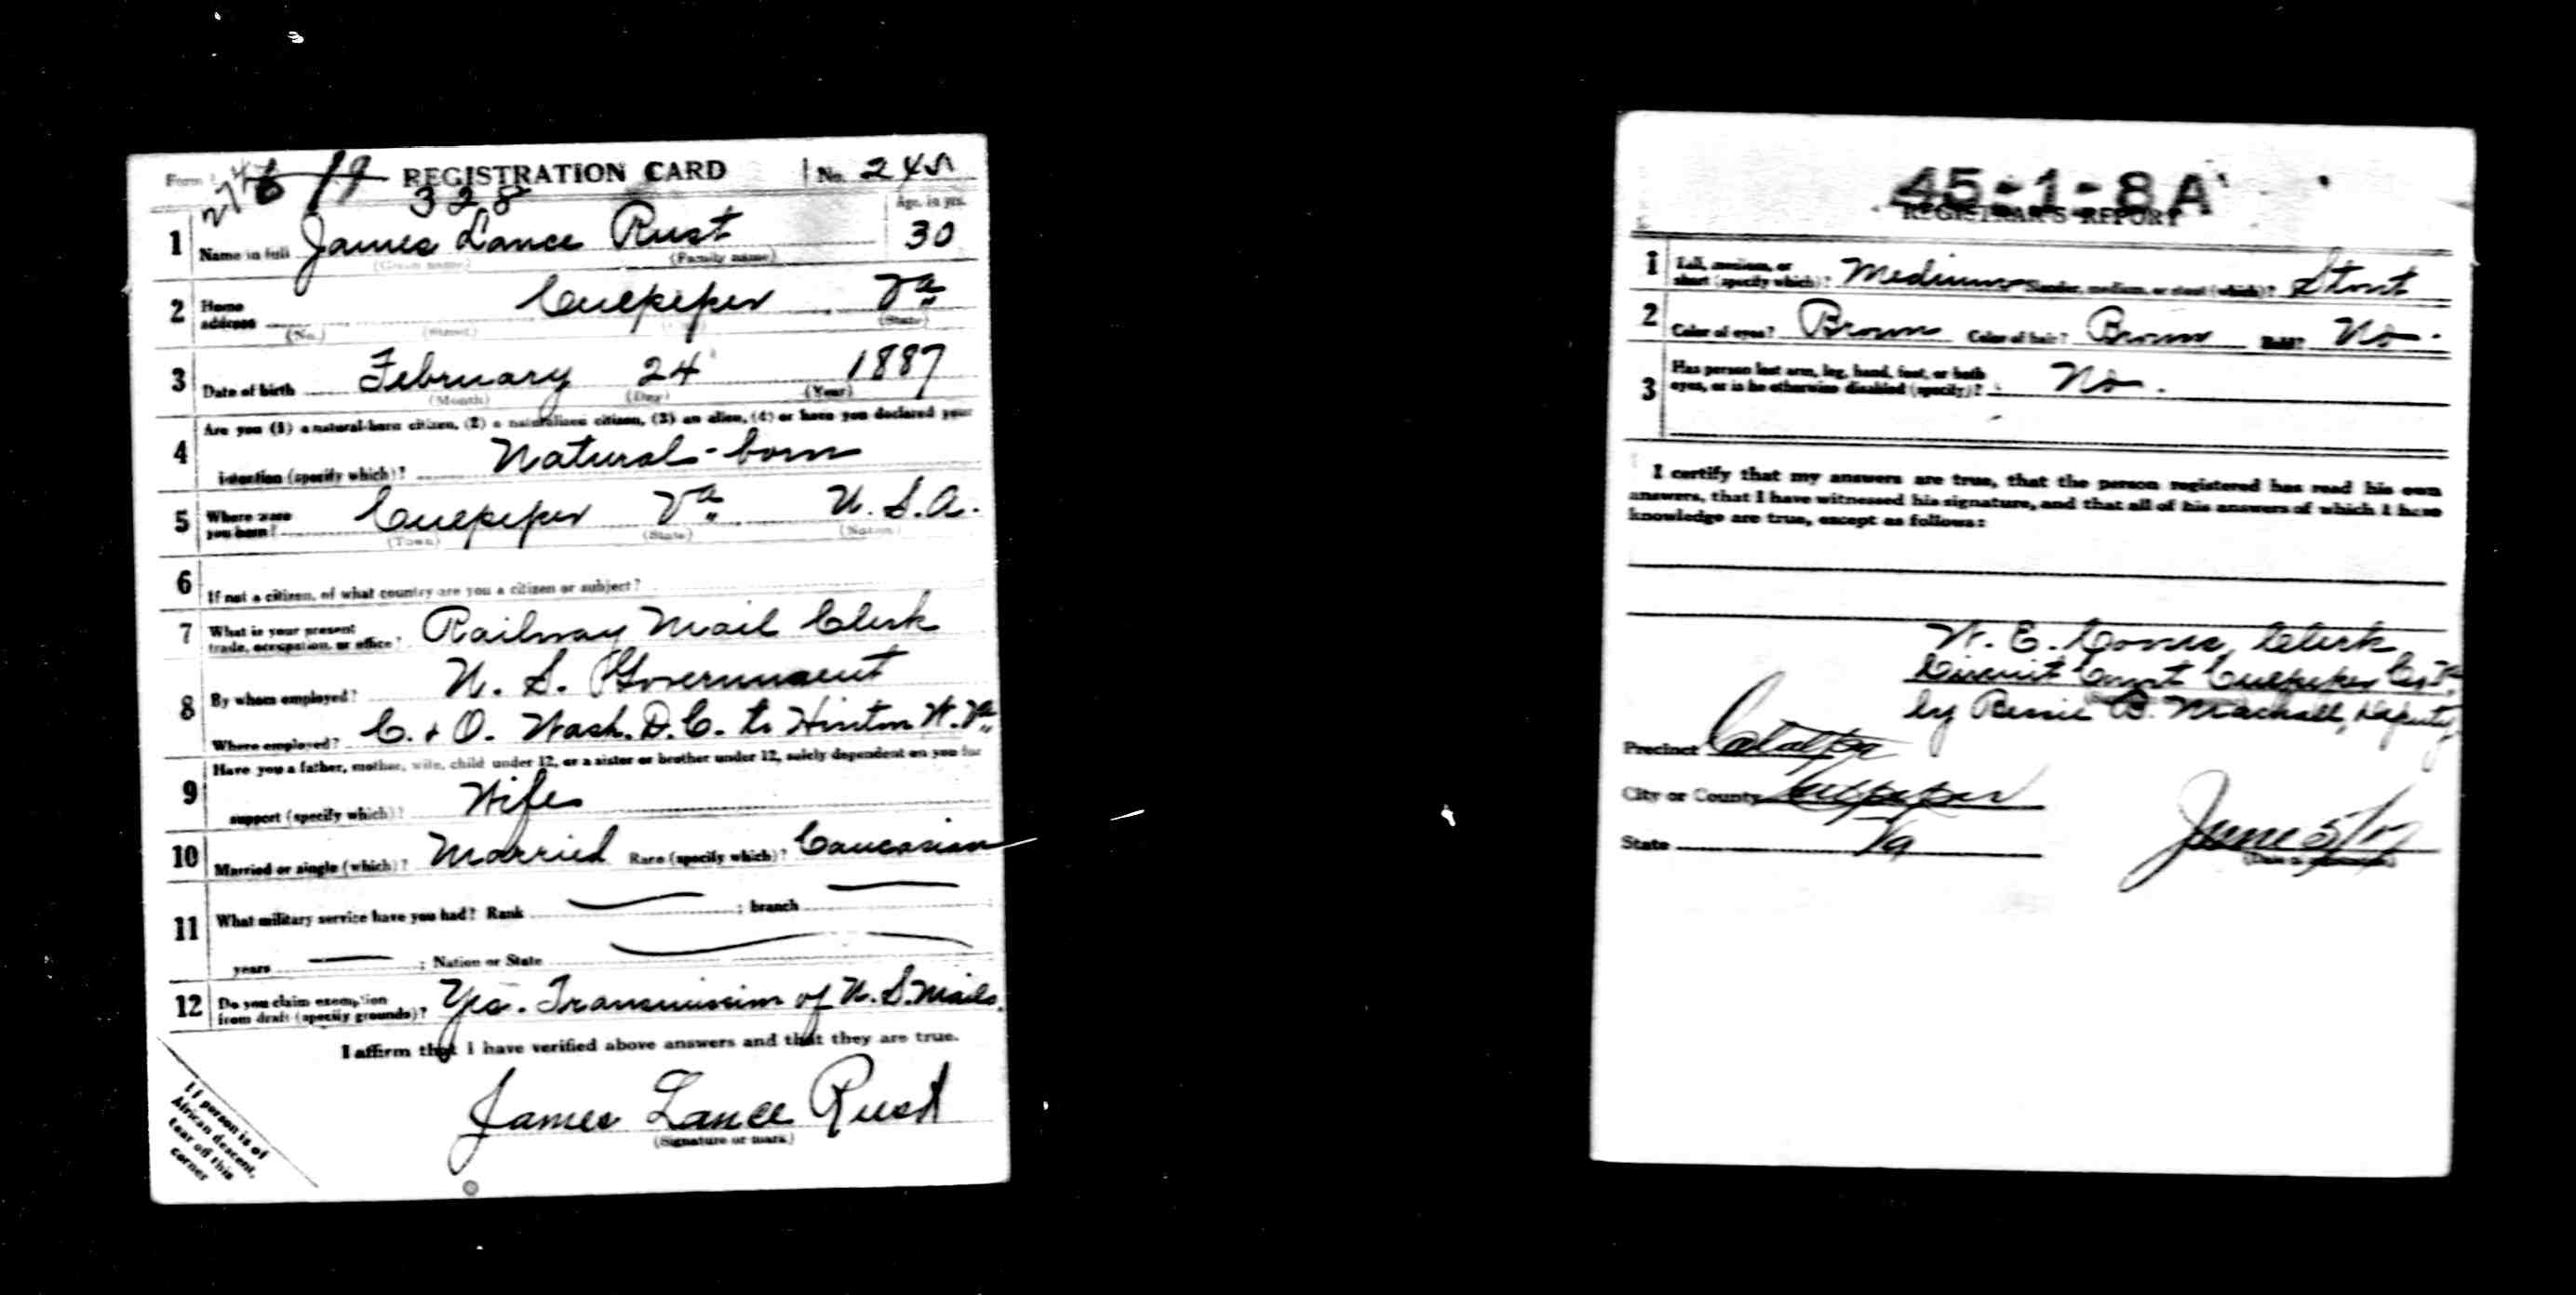 Form 1 REGISTRATION CARD No. 245
328
Age, in yrs.
1 Name in full James Lance Rust 30
(Given name) (Family name)
2 Home address Culpeper Va
(No.) (Street) (State)
3 Date of birth February 24 1887
(Month) (Day) (Year)
Are you (1) a natural-born citizen, (2) a naturalized citizen, (3) an alien, (4) or have you declared your
4 intention (specify which)? Natural-born
5 Where were you born? Culpeper Va U.S.A.
(Town) (State) (Nation)
6 If not a citizen, of what country are you a citizen or subject?
7 What is your present trade, occupation, or office? Railway Mail Clerk
8 By whom employed? U. S. Government
Where employed? C. & O. Wash. D.C. to Hinton W. Va.
Have you a father, mother, wife, child under 12, or a sister or brother under 12, solely dependent on you for
9 support (specify which)? Wife
10 Married or single (which)? Married Race (specify which)? Caucasian
11 What military service have you had? Rank ; branch
years ; Nation or State
12 Do you claim exemption from draft (specify grounds)? Yes. Transmission of U.S. Mails.
I affirm that I have verified above answers and that they are true.
James Lance Rust
(Signature or mark)
If person is of
African descent,
tear off this
corner
45-1-8 A
REGISTRAR'S REPORT
1 Tall, medium, or short (specify which)? Medium Slender, medium, or stout (which)? Stout
2 Color of eyes? Brown Color of hair? Brown Bald? No.
3 Has person lost arm, leg, hand, foot, or both eyes, or is he otherwise disabled (specify)? No.
I certify that my answers are true, that the person registered has read his own
answers, that I have witnessed his signature, and that all of his answers of which I have
knowledge are true, except as follows:
W. E. Clerk
Circuit Court Culpeper Co. Va.
by Bessie B. Deputy
Precinct Catalpa
City or County Culpeper
State Va
June 5/17